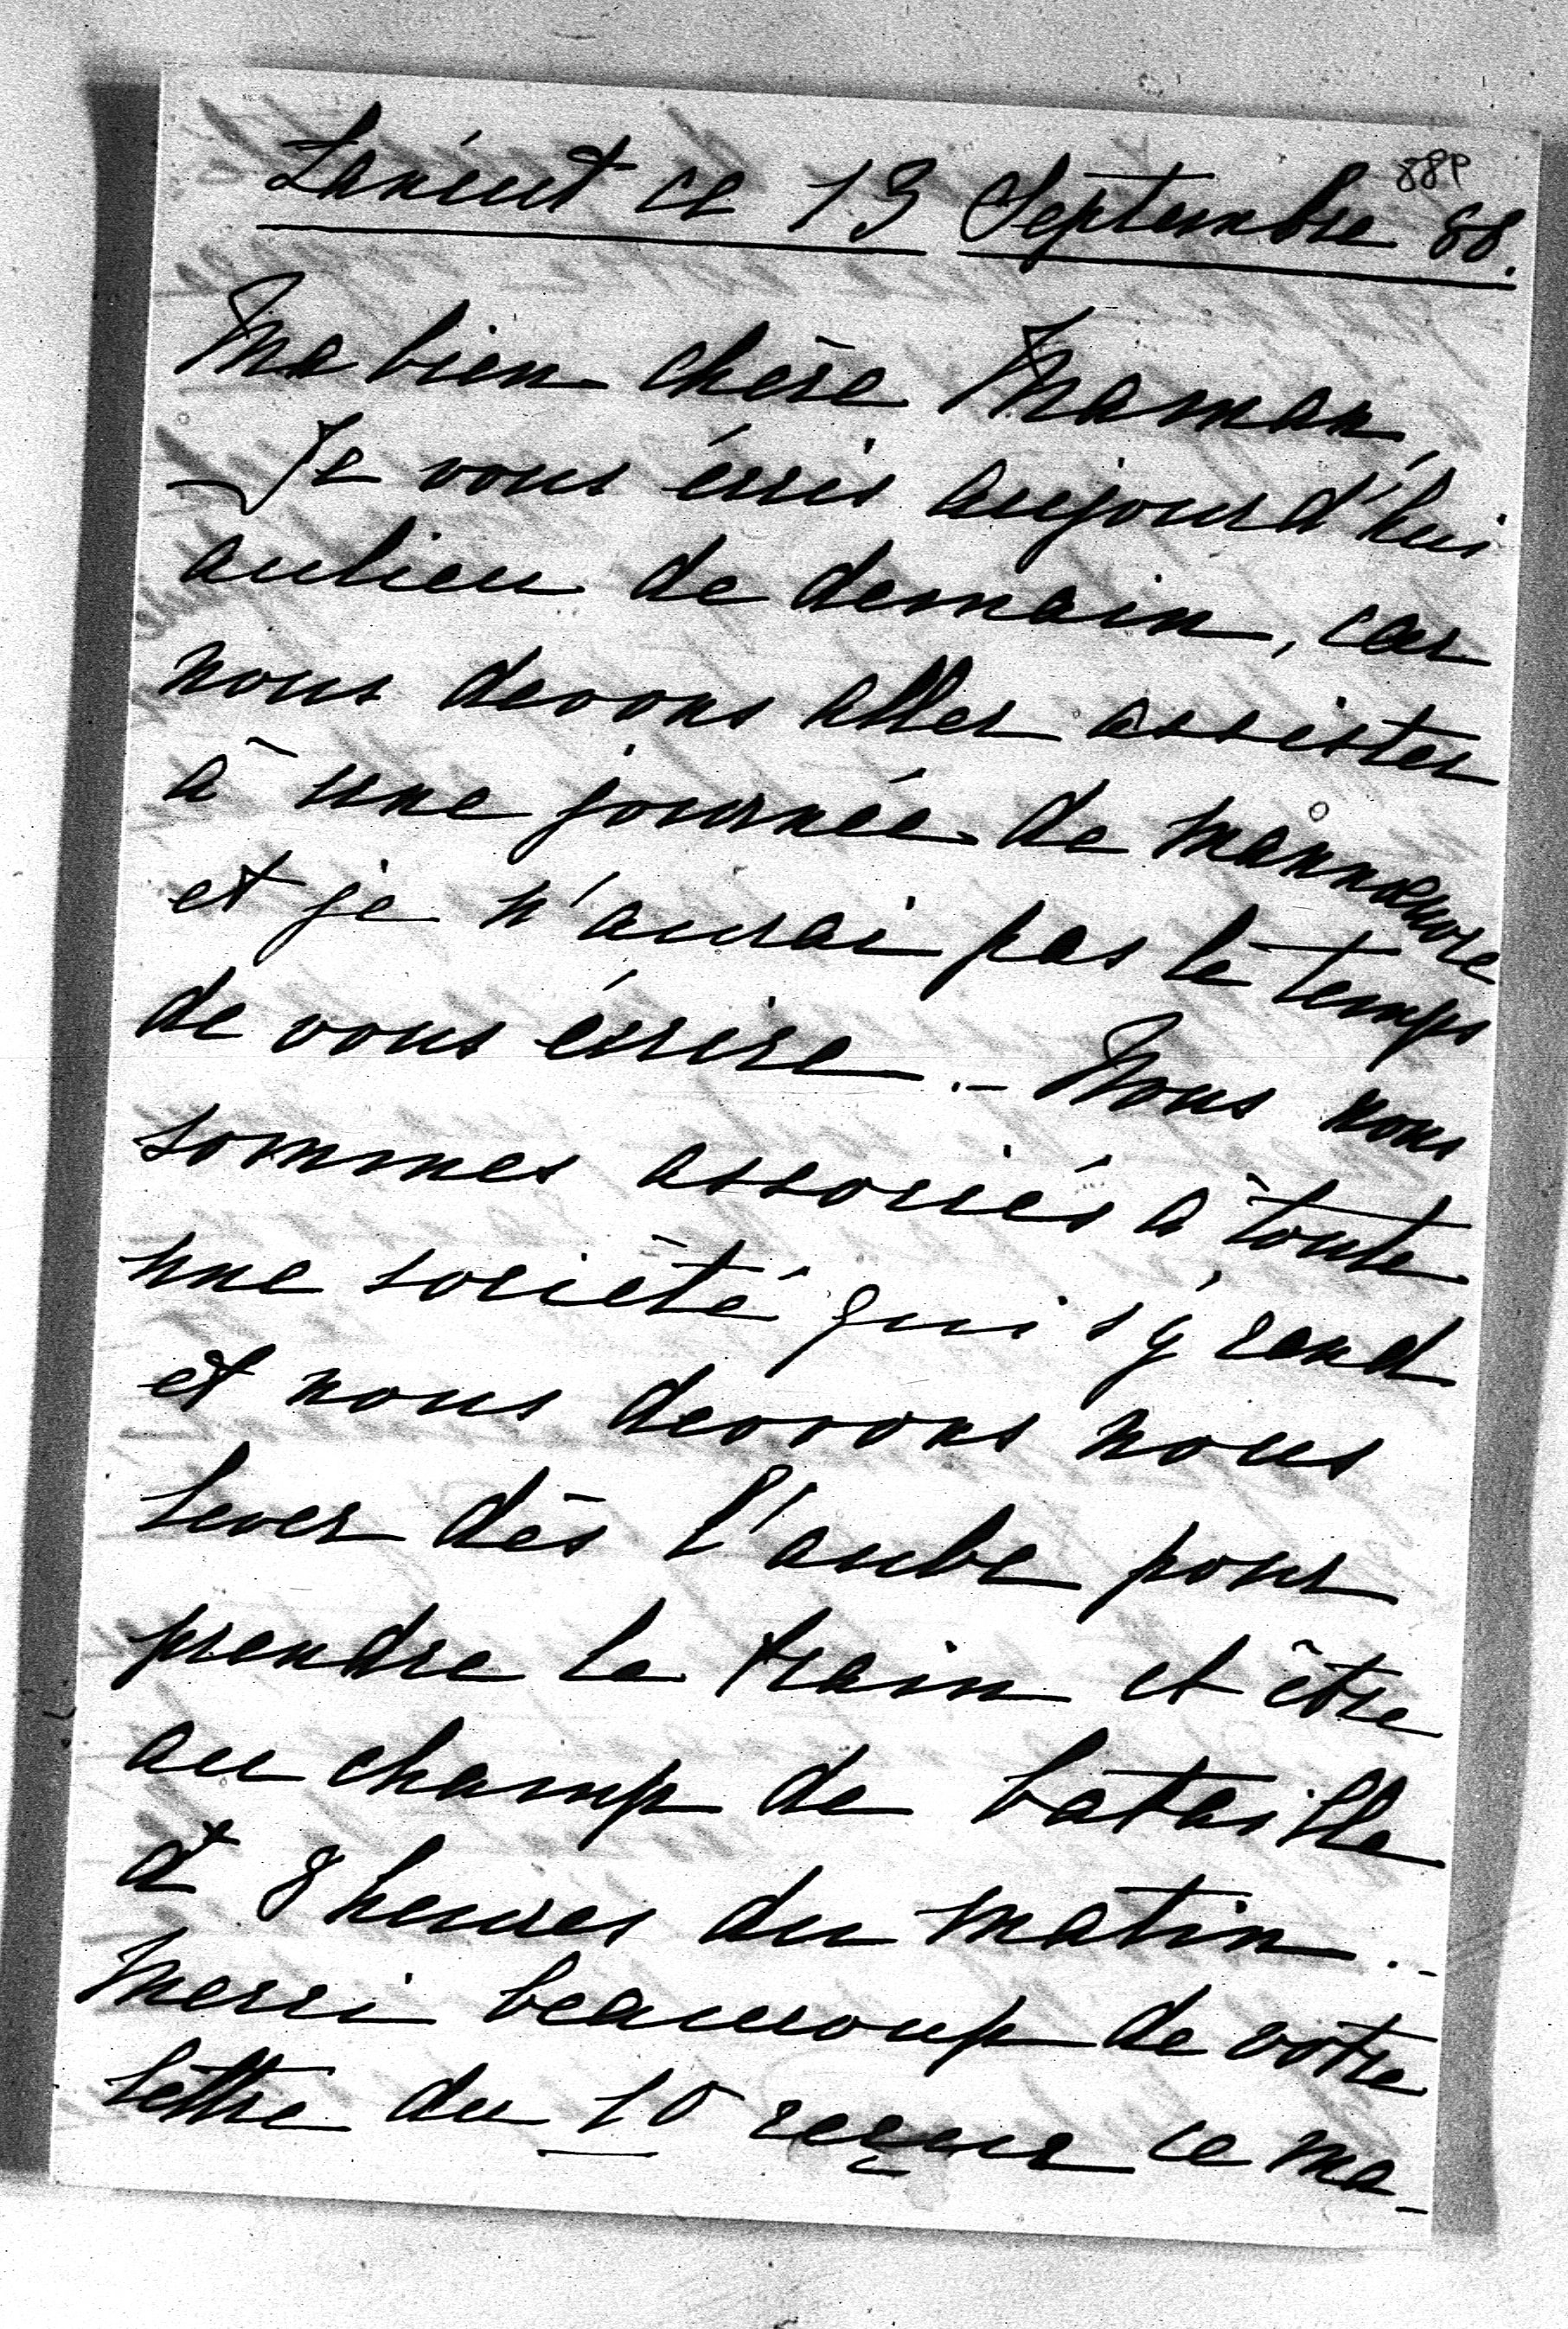 889
Lancut ce 13 Septembre 88.
Ma bien chère Maman,
Je vous écris aujourd'hui
aulieu de demain, car
nous devons aller assister
à une journée de mannœuvre
et je n'aurai pas le temps
de vous écrire.- Nous nous
sommes associés à toute
une société qui s'y rend
et nous devrons nous
lever dès l'aube pour
prendre le train et être
au champ de bataille
à 8 heures du matin.-
Merci beaucoup de votre
lettre du 10 reçue ce ma-